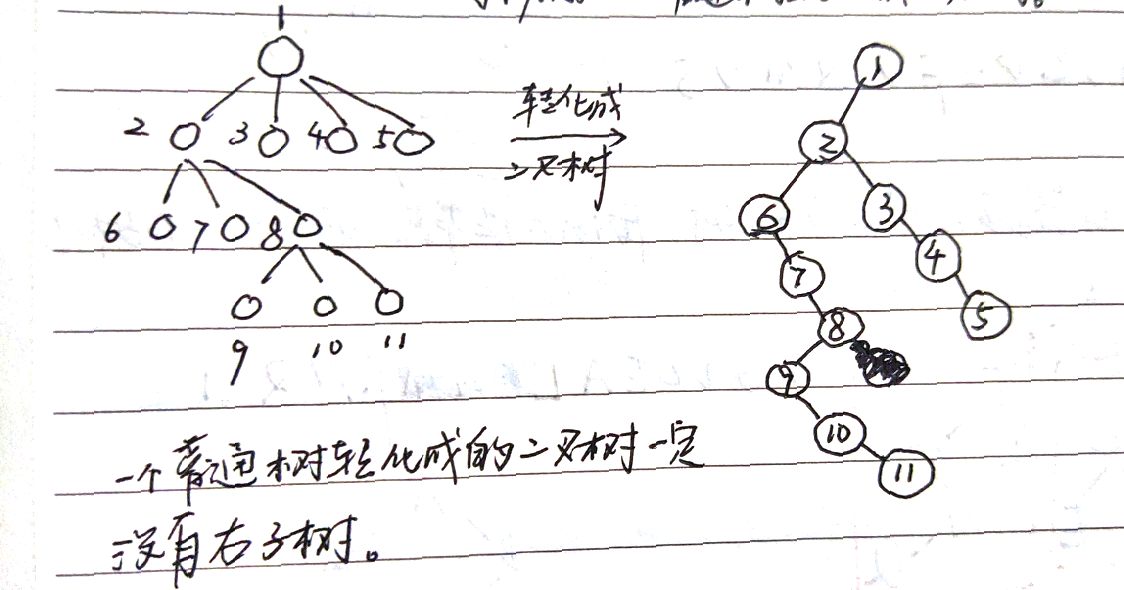 1
2 3 4 5
6 7 8
9 10 11
转化成
二叉树
1
2
6 3
7 4
8 5
9
10
11
一个普通树转化成的二叉树一定
没有右子树。